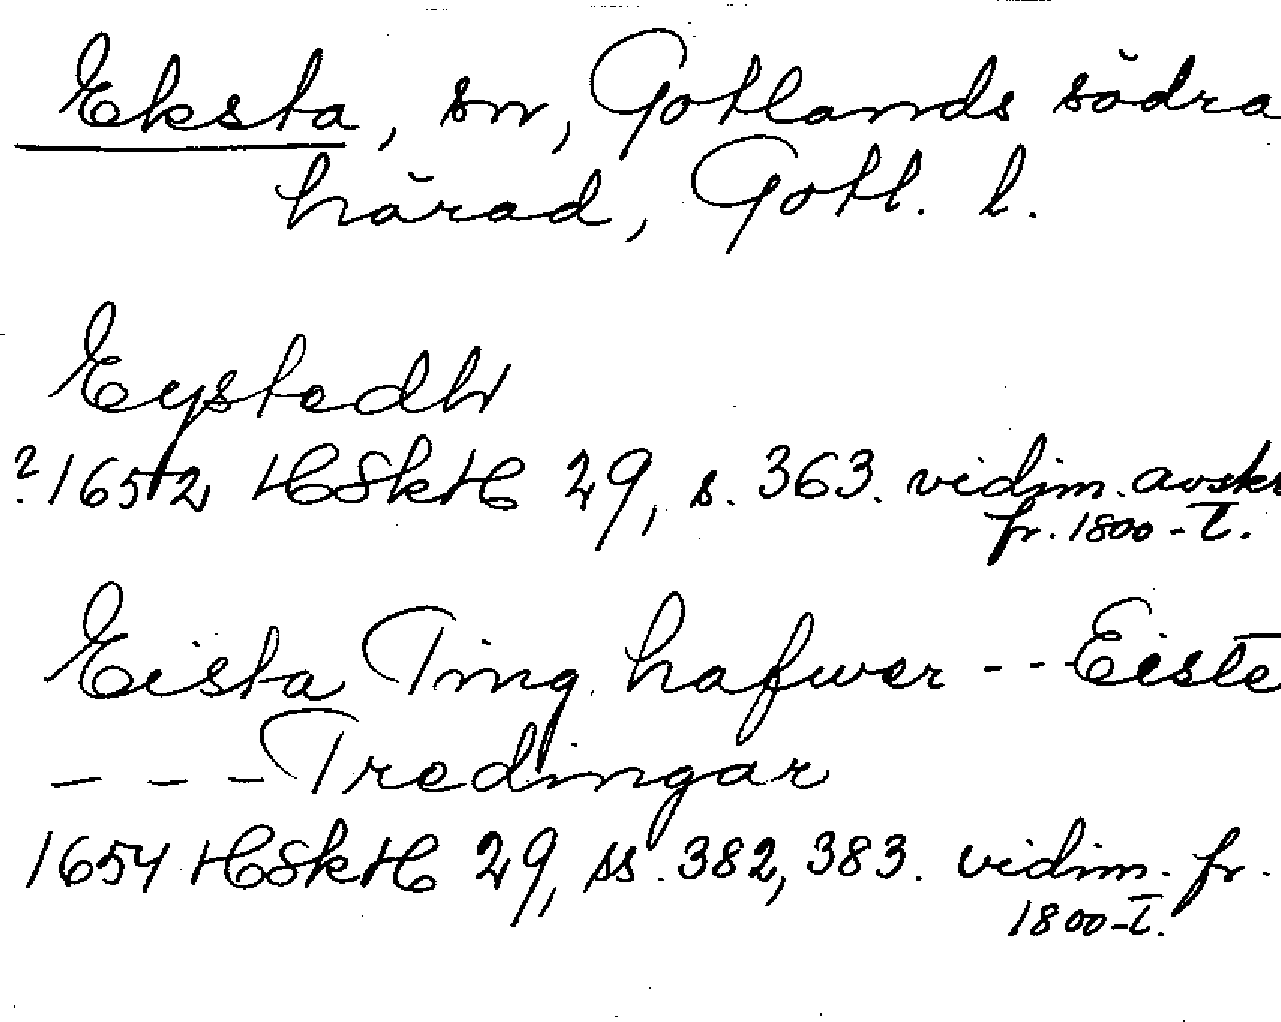 Eksta, sn, Gotlands södra
härad, Gotl. l.
Eystedhr
?1652 HSkH 29, s. 363. vidim. avskr
fr. 1800-T.
Eista Ting hafwer -- Eiste
- - - Tredingar
1654 HSkH 29, ss. 382, 383. vidim. fr.
1800-T.